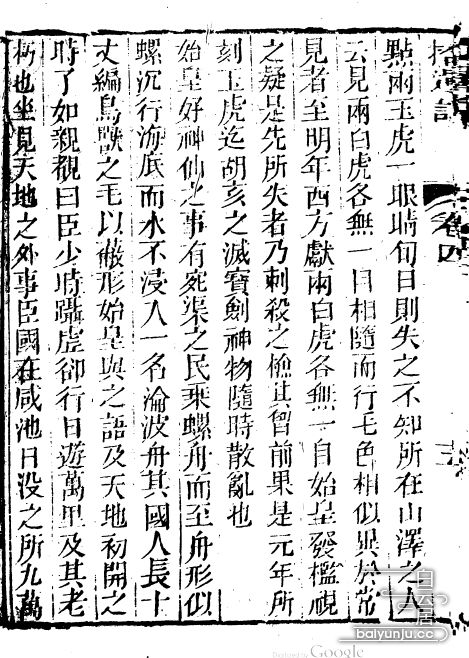 拾遺記
卷四
點兩玉虎一眼睛旬日則失之不知所在山澤之人
云見兩白虎各無一目相隨而行毛色相似異於常
見者至明年西方獻兩白虎各無一目始皇發檻視
之疑是先所失者乃刺殺之檢其胷前果是元年所
刻玉虎迄胡亥之滅寶劍神物隨時散亂也
始皇好神仙之事有宛渠之民乘螺舟而至舟形似
螺沉行海底而水不浸入一名淪波舟其國人長十
丈編鳥獸之毛以蔽形始皇與之語及天地初開之
時了如親覩曰臣少時躡虛卻行日遊萬里及其老
朽也坐見天地之外事臣國在咸池日没之所九萬
白云居
baiyunju.cc
Digitized by Google